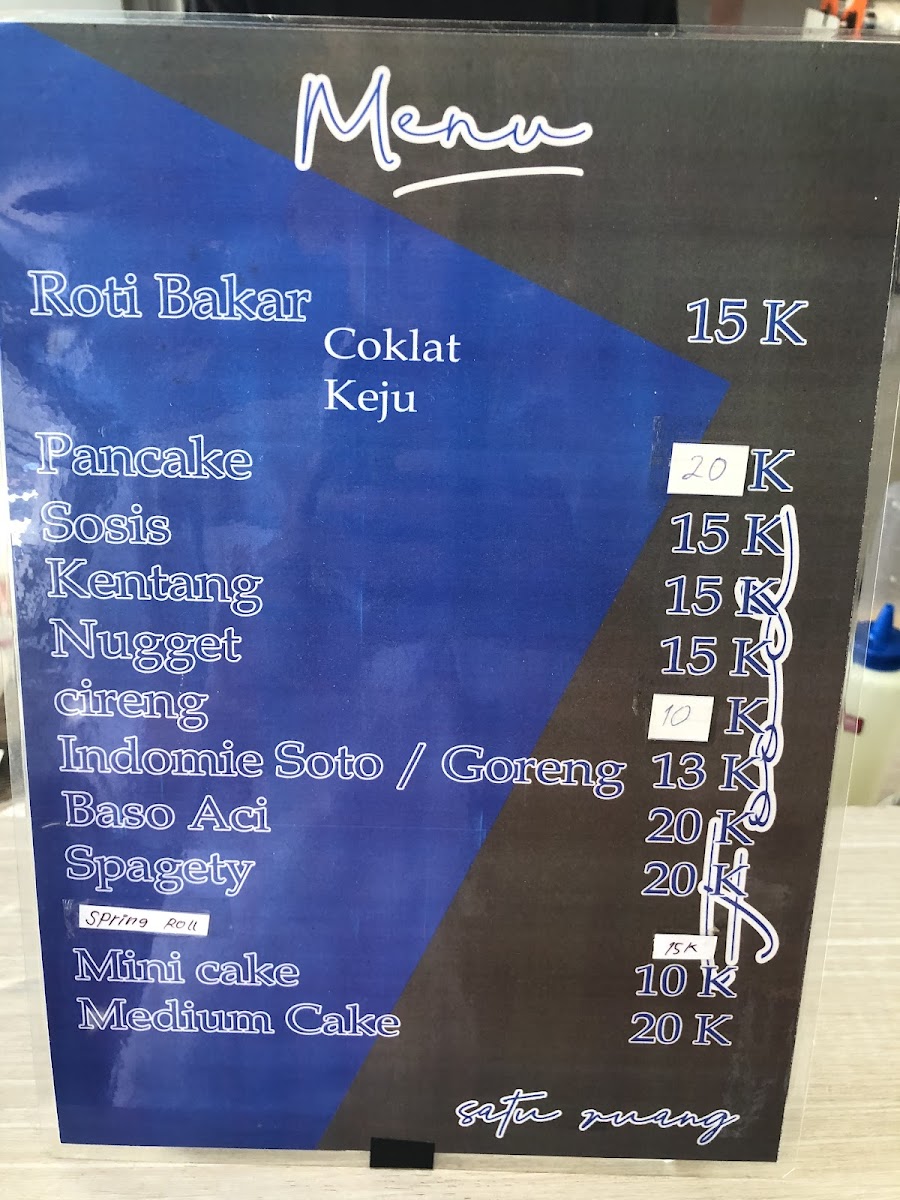 Menu
Roti Bakar 15 K
Coklat
Keju
Pancake 20 K
Sosis 15 K
Kentang 15 K
Nugget 15 K
cireng 10 K
Indomie Soto / Goreng 13 K
Baso Aci 20 K
Spagety 20 K
Spring Roll 15K
Mini cake 10 K
Medium Cake 20 K
satu ruang